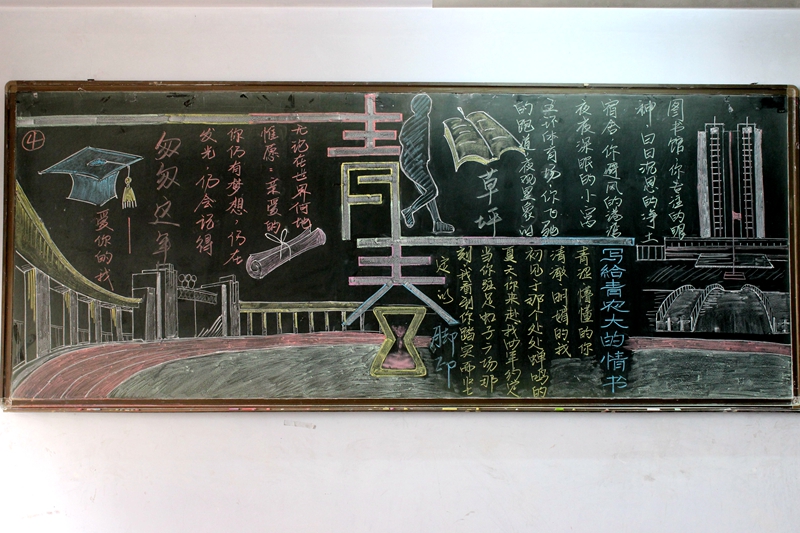 图书馆·你专注的眼
神 日日沉思的净土
宿舍·你避风的港湾
夜夜深眠的小窝
五环体育场·你飞驰
的跑道 夜夜
草坪
写给青农大的情书
青涩·懵懂的你
清澈·明媚的我
初见于那个处处蝉鸣的
夏天 你来赴我四年约定
当你驻足帽子广场那
刻 我看到你踏实而坚
定 以
脚印
青春
无论在世界何地
惟愿：亲爱的
你仍有梦想·仍在
发光·仍会记得
匆匆这年
——爱你的我
④